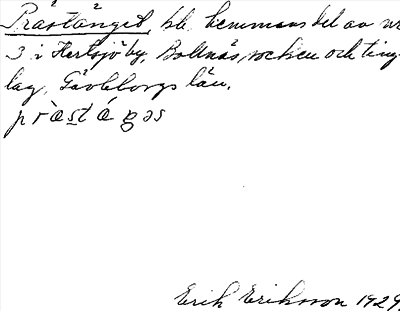 Prästänget, bb. hemmansdel av nr
3 i Hertsjö by, Bollnäs socken och ting-
lag, Gävleborgs län.
Erik Eriksson 1929.